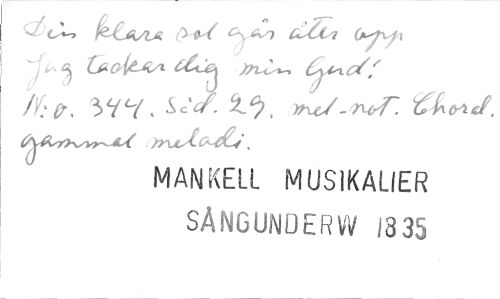 Din klara sol går åter opp
Jag tackar dig min Gud!
N:o. 344. Sid. 29. mel-not. Choral.
gammal melodi.
MANKELL MUSIKALIER
SÅNGUNDERW 1835